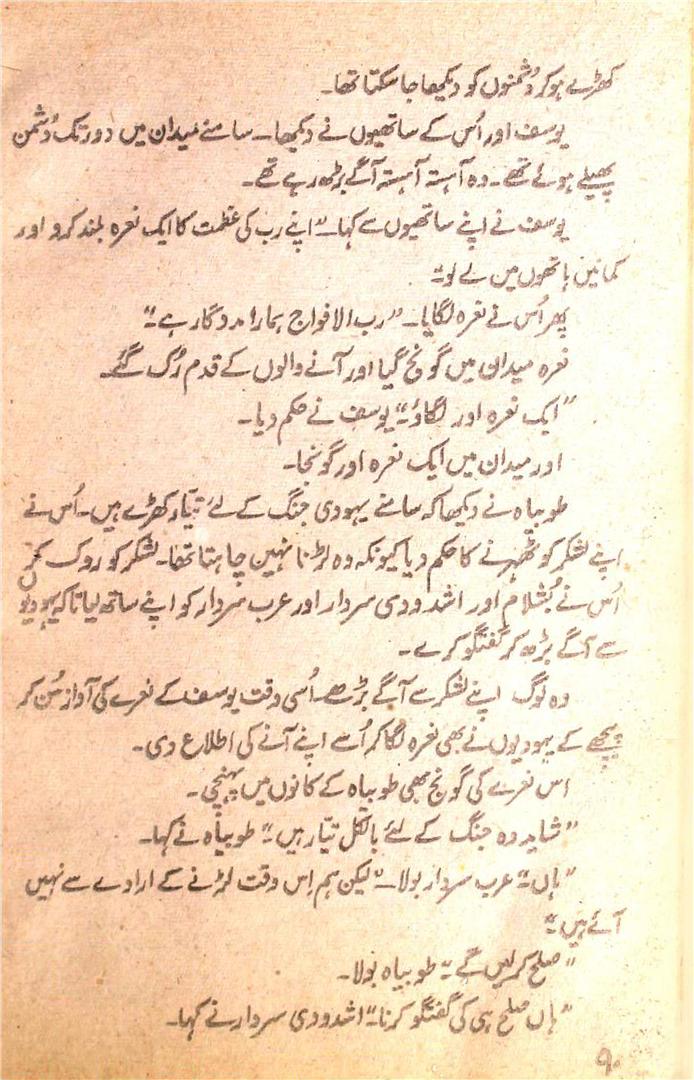 کھڑے ہو کر دُشمنوں کو دیکھا جا سکتا تھا۔
یوسف اور اُس کے ساتھیوں نے دیکھا۔ سامنے میدان میں دور تک دُشمن
پھیلے ہوئے تھے۔ وہ آہستہ آہستہ آگے بڑھ رہے تھے۔
یوسف نے اپنے ساتھیوں سے کہا۔ "اپنے رب کی عظمت کا ایک نعرہ بلند کرو اور
کمانیں ہاتھوں میں لے لو۔"
پھر اُس نے نعرہ لگایا۔ "رب الافواج ہمارا مددگار ہے۔"
نعرہ میدان میں گونج گیا اور آنے والوں کے قدم رُک گئے۔
"ایک نعرہ اور لگاؤ۔" یوسف نے حکم دیا۔
اور میدان میں ایک نعرہ اور گونجا۔
طوبیاہ نے دیکھا کہ سامنے یہودی جنگ کے لئے تیّار کھڑے ہیں۔ اُس نے
اپنے لشکر کو ٹھہرنے کا حکم دیا کیونکہ وہ لڑنا نہیں چاہتا تھا۔ لشکر کو روک کر
اُس نے بُشلام اور اشدودی سردار اور عرب سردار کو اپنے ساتھ لیا تاکہ یہودیو
سے آگے بڑھ کر گفتگو کرے۔
وہ لوگ اپنے لشکر سے آگے بڑھے۔ اُسی وقت یوسف کے نعرے کی آواز سُن کر
پیچھے کے یہودیوں نے بھی نعرہ لگا کر اُسے اپنے آنے کی اطلاع دی۔
اس نعرے کی گونج بھی طوبیاہ کے کانوں میں پہنچی۔
"شاید وہ جنگ کے لئے بالکل تیّار ہیں۔" طوبیاہ نے کہا۔
"ہاں۔" عرب سردار بولا۔ "لیکن ہم اِس وقت لڑنے کے ارادے سے نہیں
آئے ہیں۔"
"صلح کر لیں گے۔" طوبیاہ بولا۔
"ہاں صلح ہی کی گفتگو کرنا۔" اشدودی سردار نے کہا۔
۹۰